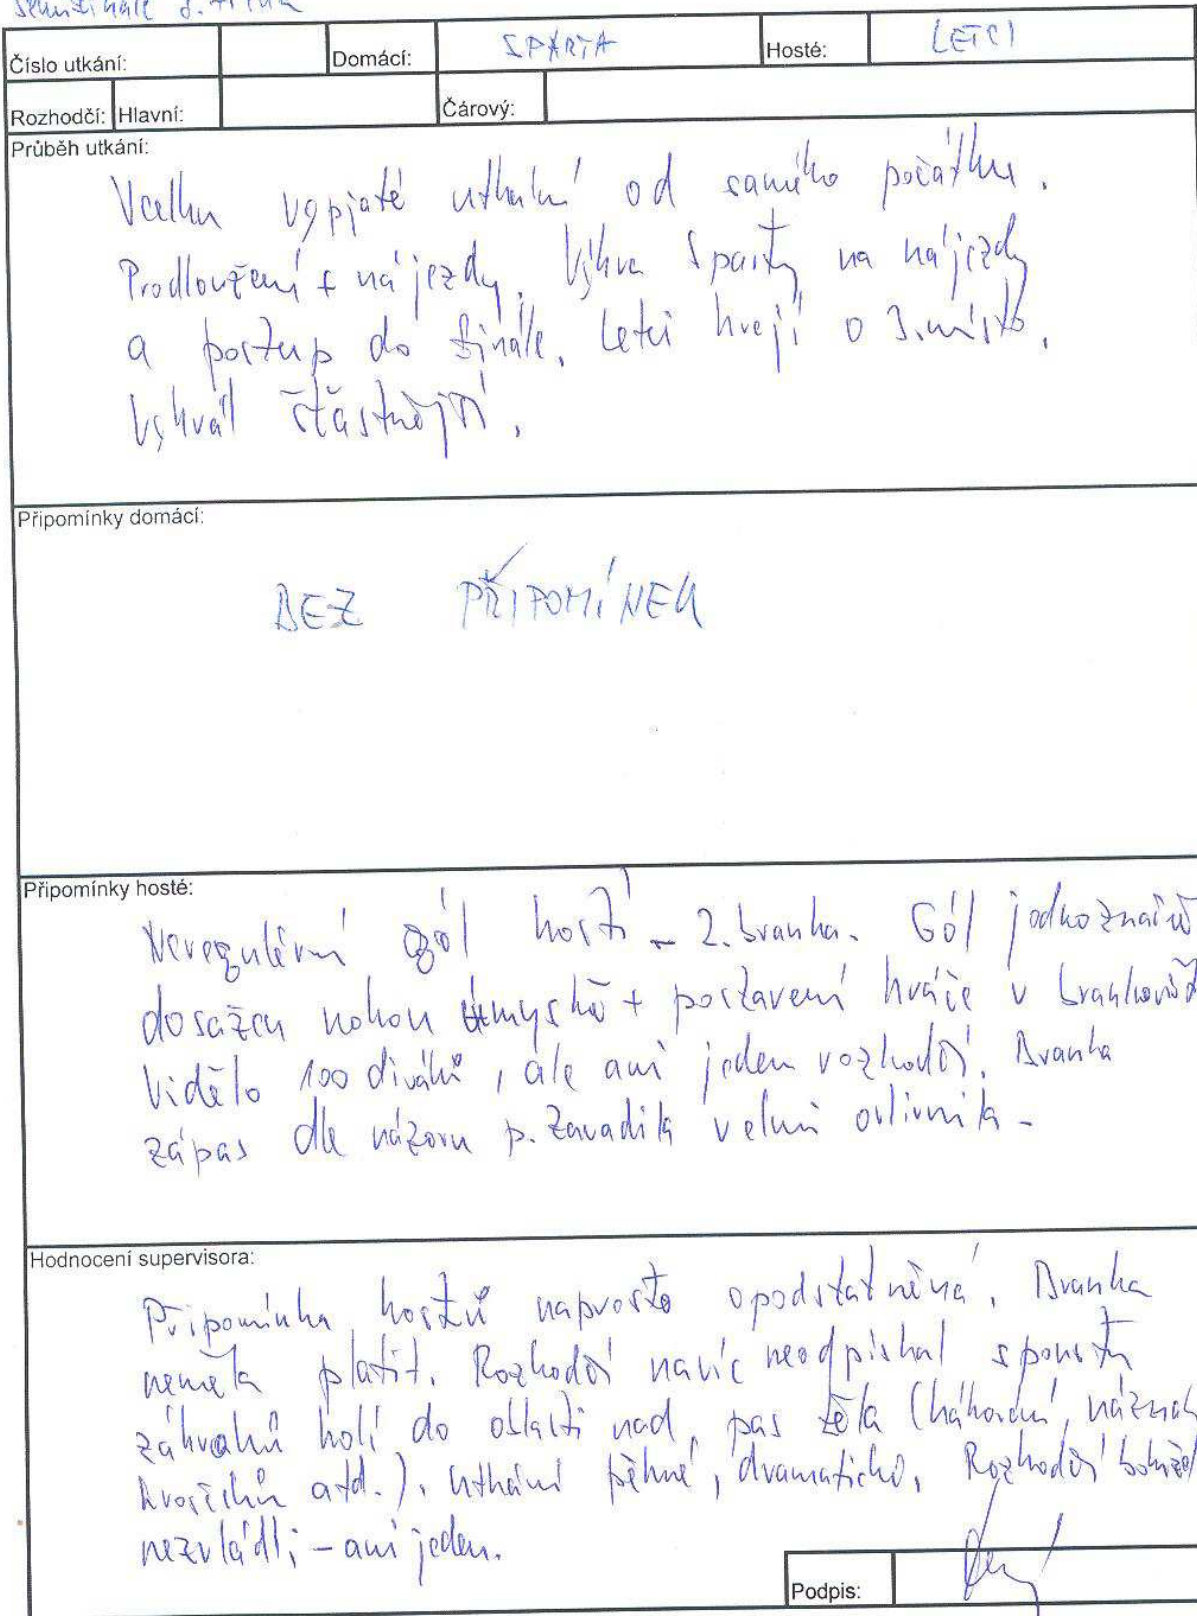 Číslo utkání: Domácí: SPARTA Hosté: LETCI
Rozhodčí: Hlavní: Čárový:
Průběh utkání:
Vcelku vypjaté utkání od samého počátku.
Prodloužení + nájezdy. Výhra Sparty na nájezdy
a postup do finále. Letci hrají o 3. místo.
Vyhrál šťastnější.
Připomínky domácí:
BEZ PŘIPOMÍNEK
Připomínky hosté:
Neregulérní gól hostí - 2. branka. Gól jednoznačně
dosažen nohou úmyslně + postavení hráče v brankovišti
Vidělo 100 diváků, ale ani jeden rozhodčí. Branka
zápas dle názoru p. Zavadila velmi ovlivnila -
Hodnocení supervisora:
Připomínka hostů naprosto opodstatněná. Branka
neměla platit. Rozhodčí navíc neodpískal spoustu
zákroků holí do oblasti nad pas těla (hákování, náznak
krosčeků atd.). Utkání pěkné, dramatické. Rozhodčí bohužel
nezvládli - ani jeden.
Podpis: